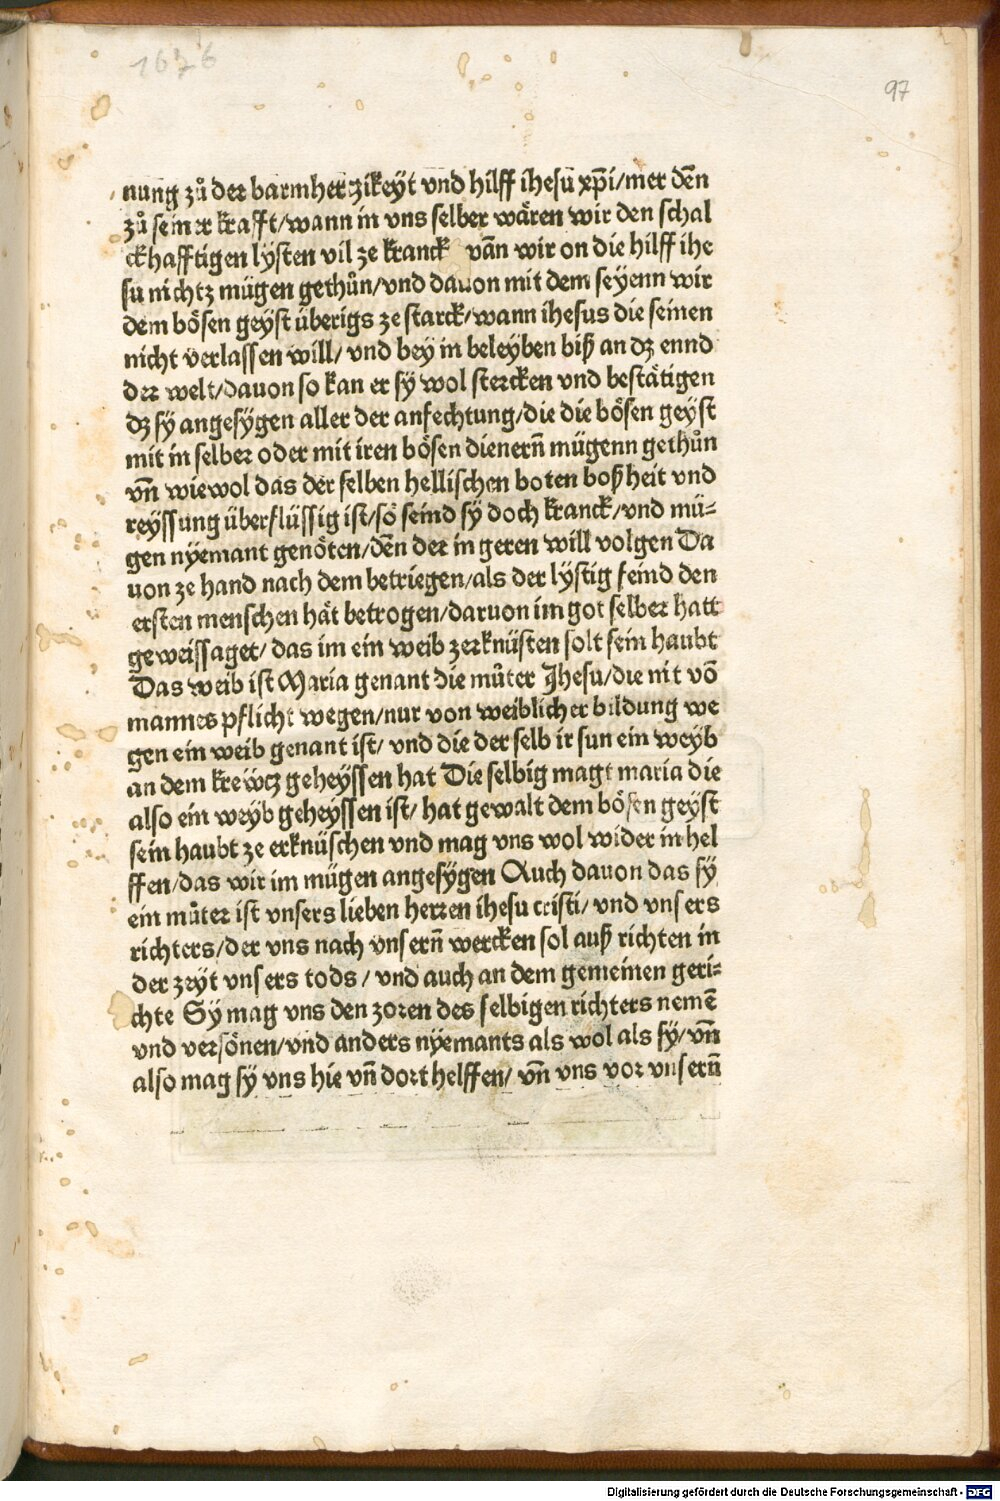 1676
97
nung zů der barmherczikeyt vnd hilff ihesu xp̄i/mer deñ
zů seiner krafft/wann in vns selber wären wir den schal
ckhafftigen lysten vil ze kranck vañ wir on die hilff ihe
su nichtz mügen gethůn/vnd dauon mit dem seyenn wir
dem bösen geyst überigs ze starck/wann ihesus die seinen
nicht verlassen will/ vnd bey in beleyben biß an dz ennd
der welt/dauon so kan er sÿ wol stercken vnd bestätigen
dz sÿ angesygen aller der anfechtung/die die bösen geyst
mit in selber oder mit iren bösen dienerñ mügenn gethůn
vñ wiewol das der selben hellischen boten boßheit vnd
reyssung überflüssig ist/so seind sÿ doch kranck/vnd mü⸗
gen nÿemant genöten/deñ der in geren will volgen Da
uon ze hand nach dem betriegen/als der lÿstig feind den
ersten menschen hät betrogen/daruon im got selber hatt
geweissaget/ das im ein weib zerknüsten solt sein haubt
Das weib ist Maria genant die můter Jhesu/die nit võ
mannes pflicht wegen/nur von weiblicher bildung we
gen ein weib genant ist/ vnd die der selb ir sun ein weyb
an dem krewcz geheyssen hat Die selbig magt maria die
also ein weyb geheyssen ist/ hat gewalt dem bösen geyst
sein haubt ze erknüschen vnd mag vns wol wider in hel
ffen/das wir im mügen angesÿgen Auch dauon das sÿ
ein můter ist vnsers lieben herren ihesu cristi/ vnd vnsers
richters/der vns nach vnserñ wercken sol auß richten in
der zeyt vnsers tods / vnd auch an dem gemeinen geri⸗
chte Sÿ mag vns den zoren des selbigen richters nemē
vnd versönen/vnd anders nÿemants als wol als sÿ/ vñ
also mag sÿ vns hie vñ dort helffen/ vñ vns vor vnserñ
Digitalisierung gefördert durch die Deutsche Forschungsgemeinschaft - DFG